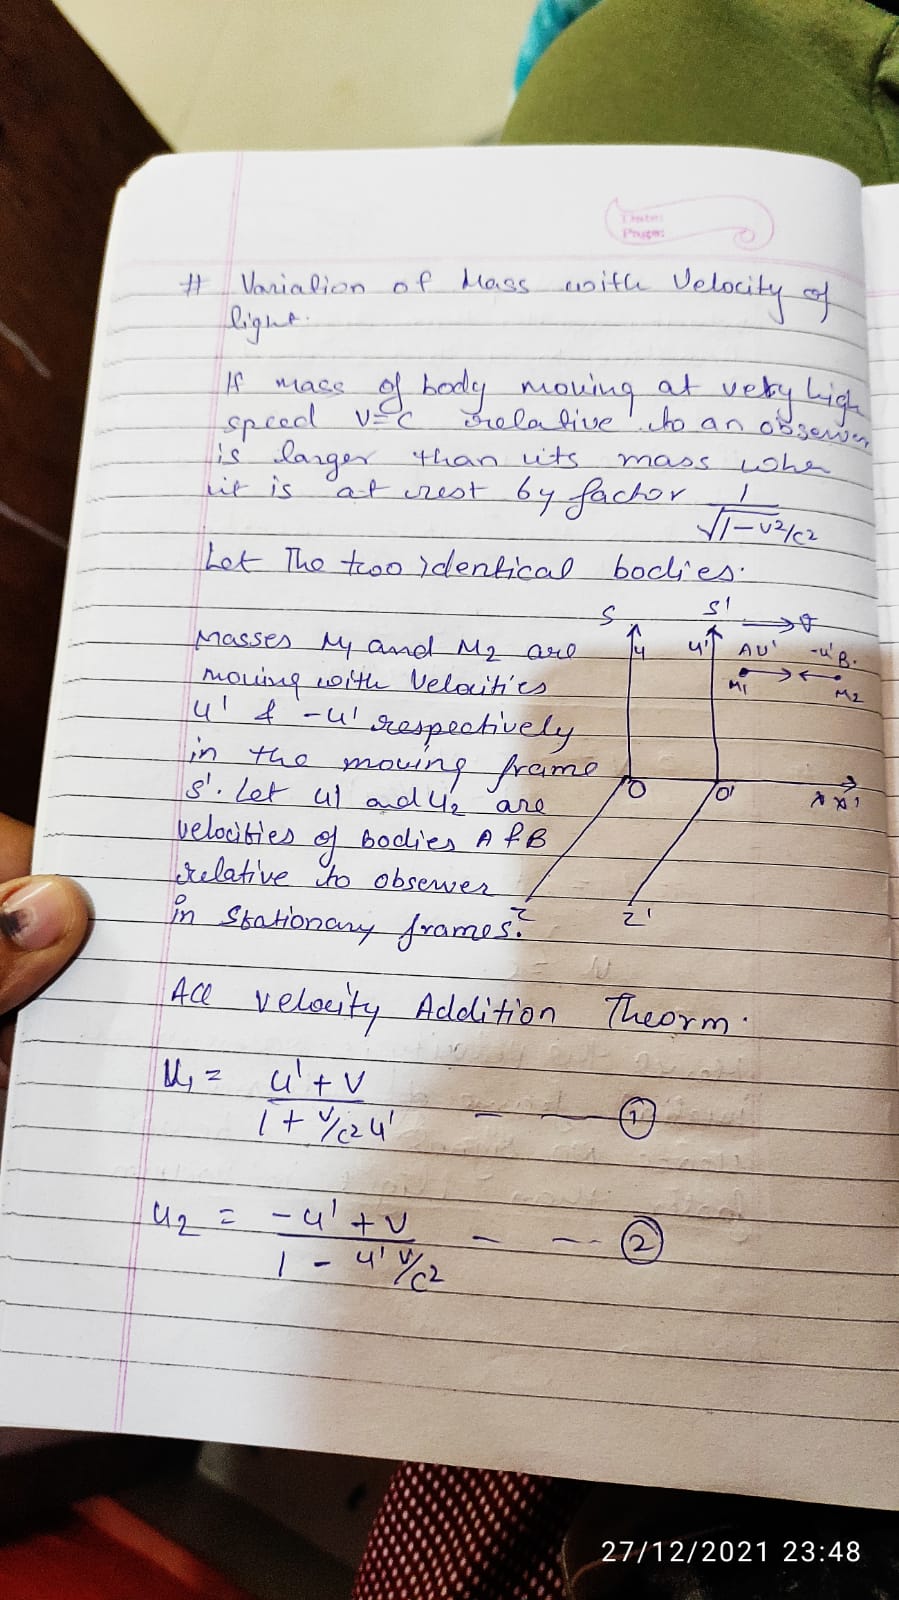 Date:
Page:
# Variation of Mass with Velocity of
light.
If mass of body moving at very high
speed v=c relative to an observer
is larger than its mass when
it is at rest by factor 1/√1-v2/c2
Let The two identical bodies.
Masses M1 and M2 are
moving with Velocities
u' & -u' respectively
in the moving frame
s'. Let u1 and u2 are
velocities of bodies A & B
relative to observer
in Stationary frames.
S S' v
y y' AU' -u'B.
M1 M2
O O' x x'
z z'
ACC velocity Addition Theorm.
U1 = u'+v / 1+v/c2 u' - - — ①
u2 = -u'+v / 1-u'v/c2 - - -- ②
27/12/2021 23:48